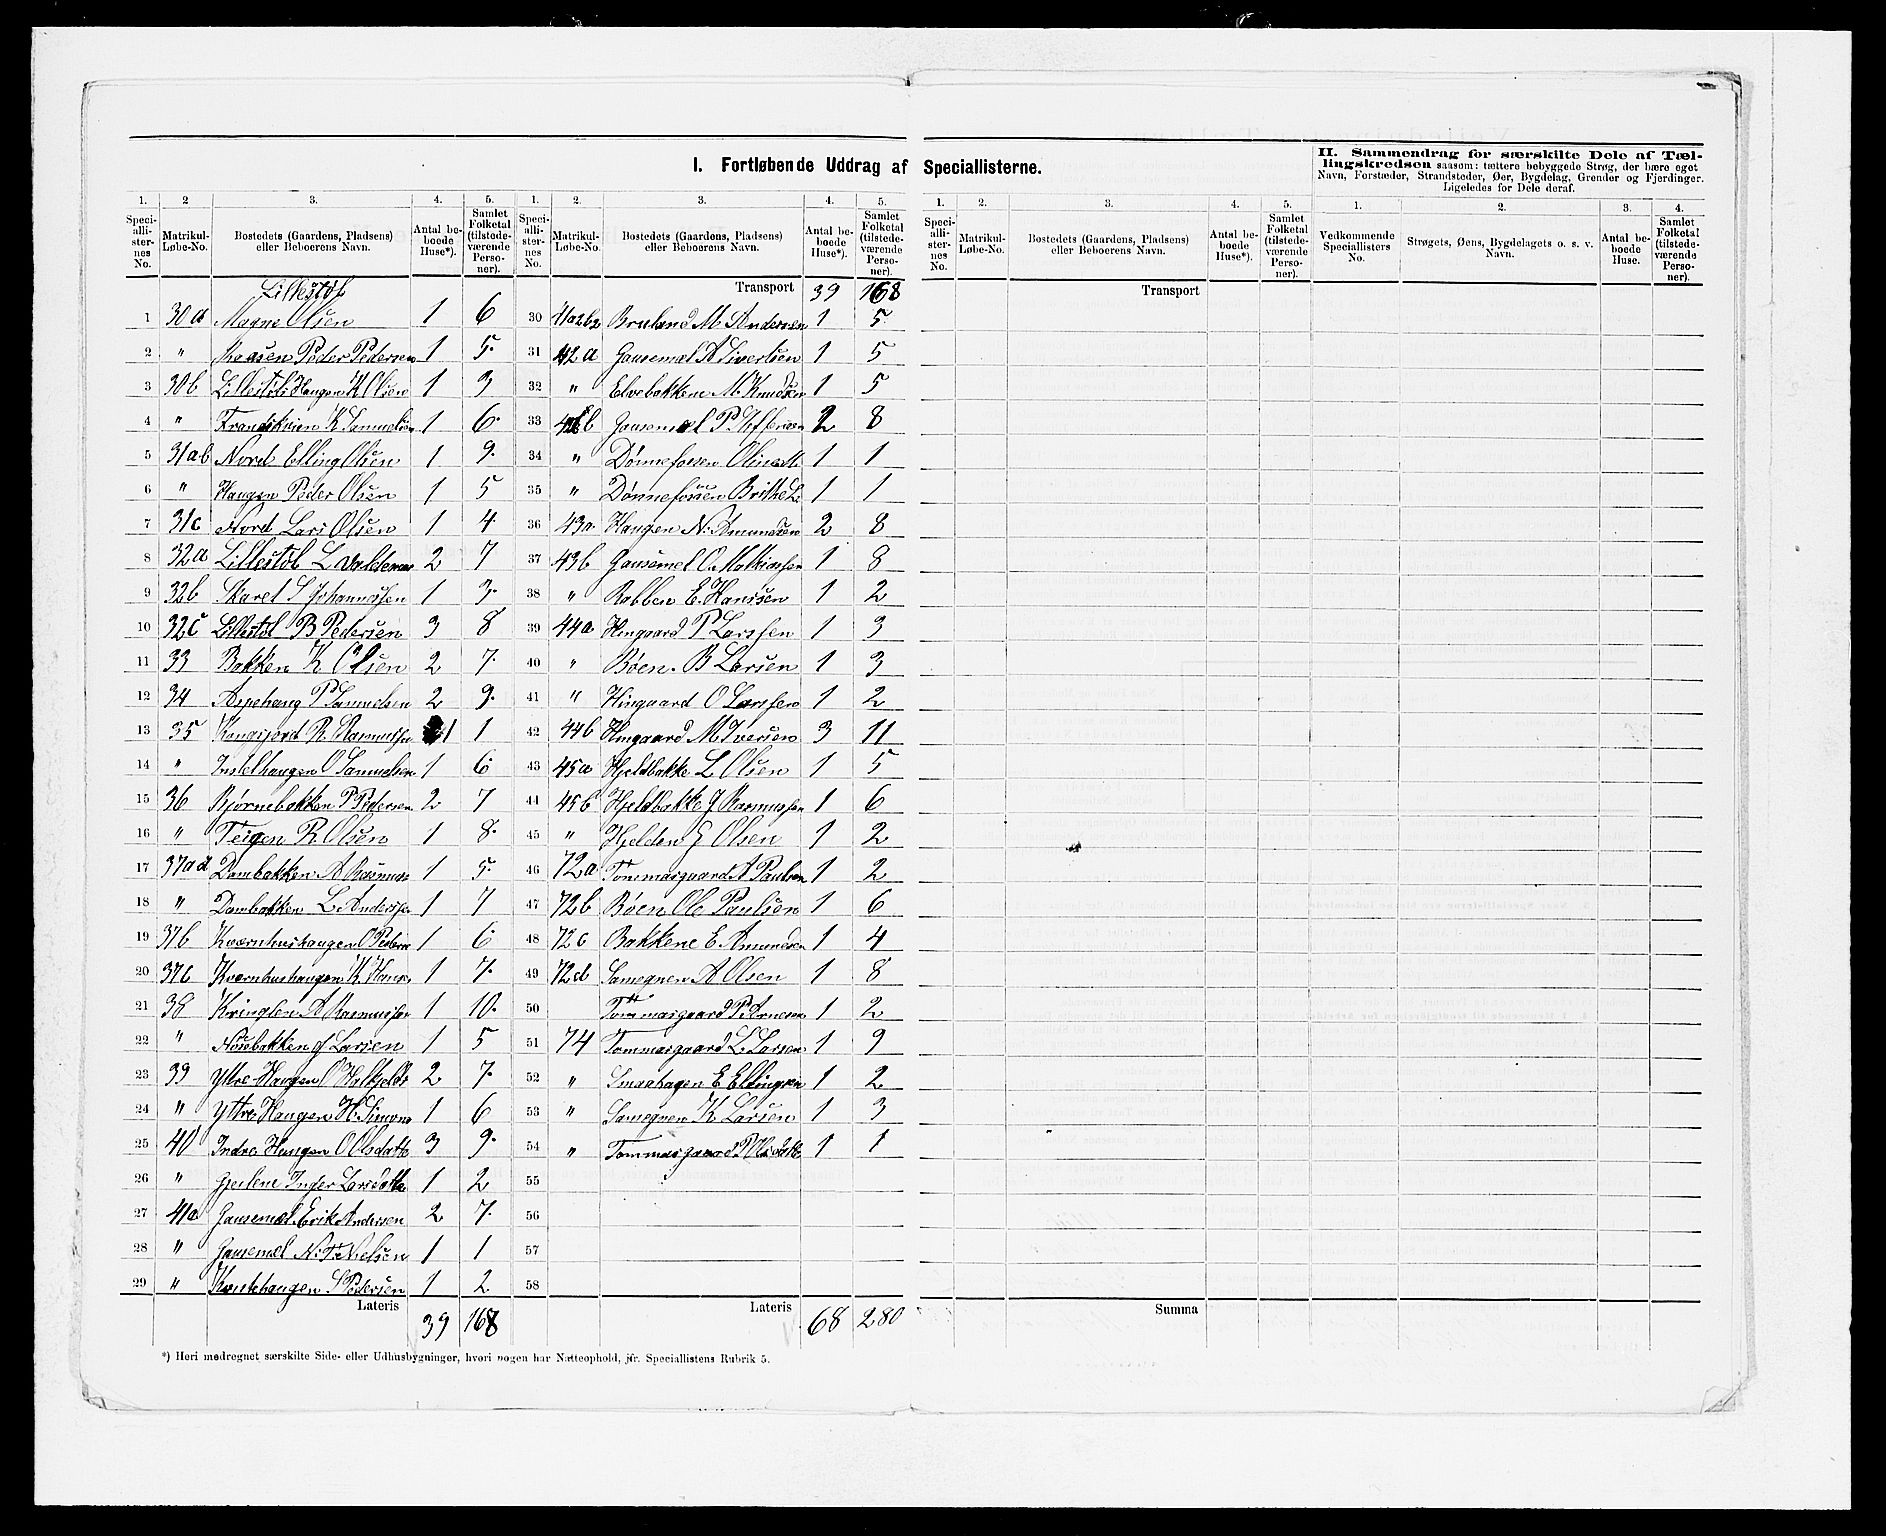 I. Fortløbende Uddrag af Speciallisterne.
II. Sammendrag for særskilte Dele af Tæl-
lingskredsen saasom: tættere bebyggede Strøg, der bære eget
Navn, Forstæder, Strandsteder, Øer, Bygdelag, Grender og Fjerdinger.
Ligeledes for Dele deraf.
1. 2 3. 4. 5. 1. 2. 3. 4. 5. 1. 2. 3. 4. 5. 1. 2. 3. 4.
Speciallister-nes No. Matrikul-Løbe-No. Bostedets (Gaardens, Pladsens) eller Beboerens Navn. Antal beboede Huse*). Samlet Folketal (tilstedeværende Personer).
Speciallister-nes No. Matrikul-Løbe-No. Bostedets (Gaardens, Pladsens) eller Beboerens Navn. Antal beboede Huse*). Samlet Folketal (tilstedeværende Personer).
Speciallister-nes No. Matrikul-Løbe-No. Bostedets (Gaardens, Pladsens) eller Beboerens Navn. Antal beboede Huse*). Samlet Folketal (tilstedeværende Personer).
Vedkommende Speciallisters No. Strøgets, Øens, Bygdelagets o. s. v. Navn. Antal beboede Huse. Samlet Folketal (tilstedeværende Personer).
Lillestøl
1 30a Magne Olsen 1 6
2 " Peder Pedersen 1 5
3 30b Lillestøls Haugen K Olsen 1 3
4 " K Samuelsen 1 6
5 31ab Nord Elling Olsen 1 9
6 " Haugen Peder Olsen 1 5
7 31c Nord Lars Olsen 1 4
8 32a Lillestøl L 2 7
9 32b Skaret S Johannessen 1 3
10 32c Lillestøl B Pedersen 3 8
11 33 Bakken K Olsen 2 7
12 34 Aspehaug P Samuelsen 2 9
13 35 R. Rasmussen 1 1
14 " O Samuelsen 1 6
15 36 Bjørnebakken P Pedersen 2 7
16 " Teigen R Olsen 1 8
17 37ad Dambakken A 1 5
18 " Dambakken L. Anderssen 1 7
19 37b Kværnhushaugen O 1 6
20 37c Kværnhushaugen K 1 7
21 38 Kringlen A Rasmussen 1 10
22 " Nösebakken J Larsen 1 5
23 39 Yttre Haugen O 2 7
24 " Yttre Haugen H. 1 6
25 40 Indre Haugen O Olsdatter 3 9
26 " Gjeilene Inger Larsdatter 1 2
27 41a Gausemæl Erik Andersen 2 7
28 " Gausemæl N. T. Nielsen 1 1
29 " S Pedersen 1 2
Lateris 39 168
Transport 39 168
30 41a2b2 Bruland M Andersen 1 5
31 42a Gausemæl A Sivertsen 1 5
32 " Elvebakken M. Knudsen 1 5
33 42b Gausemæl P. 2 8
34 " Dönnefossen Oline M. 1 1
35 " Dönnefossen Brithe L. 1 1
36 43a Haugen N. Amundsen 2 8
37 43b Gausemel O. Mathiassen 1 8
38 " Rabben E. Hanssen 1 2
39 44a Hingaard P Larssen 1 3
40 " Bøen B Larsen 1 3
41 " Hingaard O Larssen 1 2
42 44b Hingaard M Iversen 3 11
43 45a Hjeldbakke L Olsen 1 5
44 45b Hjeldbakke J Rasmussen 1 6
45 " Hjelden Olsen 1 2
46 72a Tommasgaard A Paulsen 1 2
47 72b Bøen Ole Paulsen 1 6
48 72c Bakkene E. Amundsen 1 4
49 72d Samegnen A Olsen 1 8
50 Tommasgaard P. Arnesen 1 2
51 74 Tommasgaard L. Larsen 1 9
52 " Smaahagen E Ellingsen 1 2
53 " Samegnen K Larsen 1 3
54 " Tommasgaard P Olsdatter 1 1
55
56
57
58
Lateris 68 280
Transport
Summa
*) Heri medregnet særskilte Side- eller Udhusbygninger, hvori nogen har Natteophold, jfr. Speciallistens Rubrik 5.